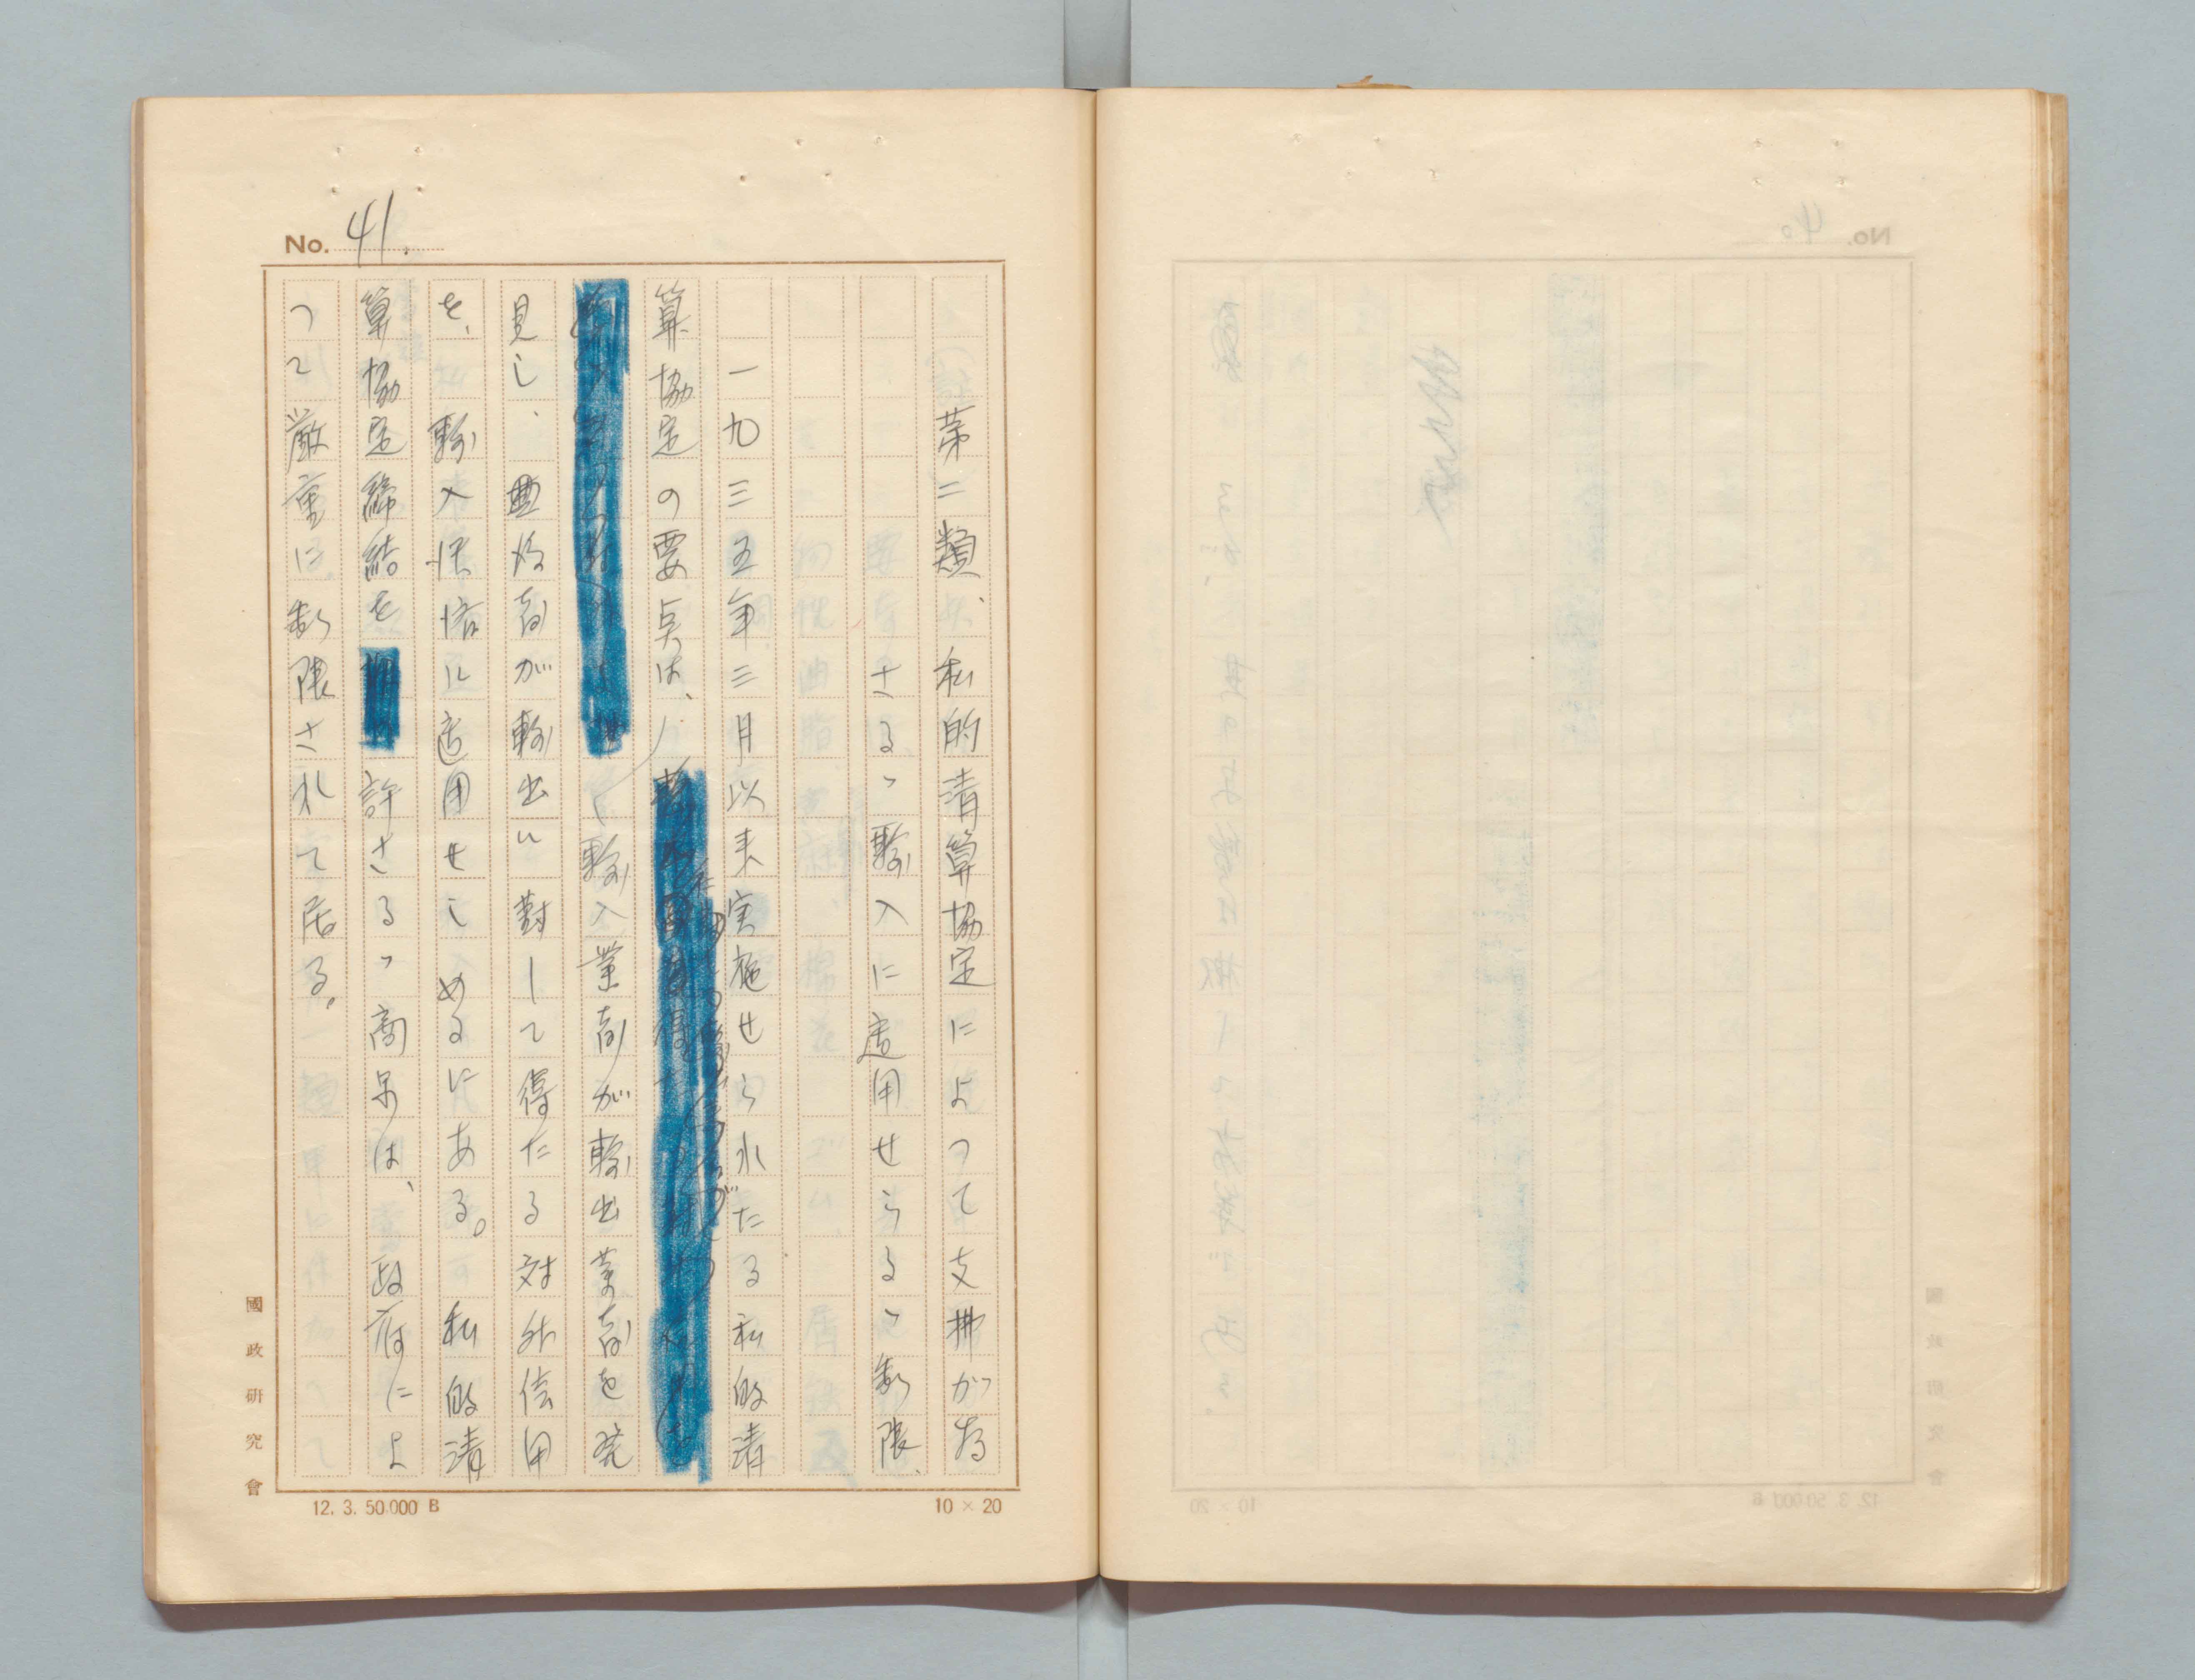 No. 41.
第二類、私的清算協定によつて支拂が為
さるゝ輸入に適用せらるゝ制限、
一九三五年三月以来実施せられたる私的清
算協定の要点は、
輸入業者が輸出業者を発
見し、其業者が輸出に對して得たる対外信用
を、輸入決済に適用せしめるにある。私的清
算協定締結を許さるゝ商品は、政府によ
つて厳重に制限されて居る。
國政研究會
12. 3. 50.000 B
10 × 20